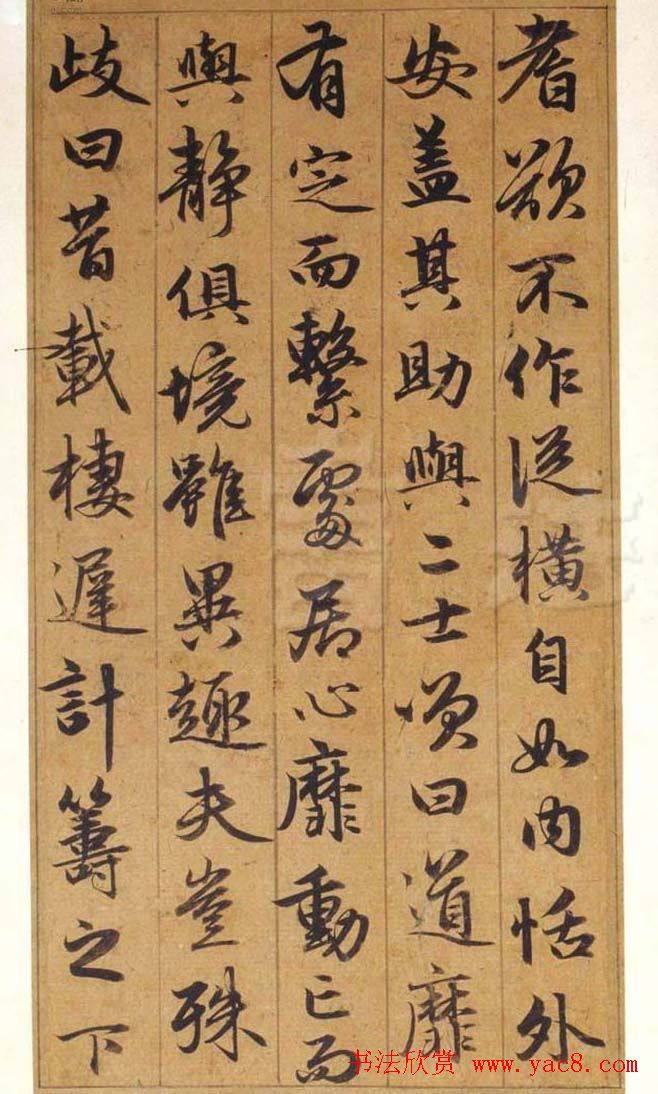 耆欲不作從橫自如內恬外
安蓋其助與二士頌曰道靡
有定而繫處居心靡動亡而
與静俱境雖異趣夫豈殊
歧曰昔載棲遲計籌之下
书法欣赏 www.yac8.com